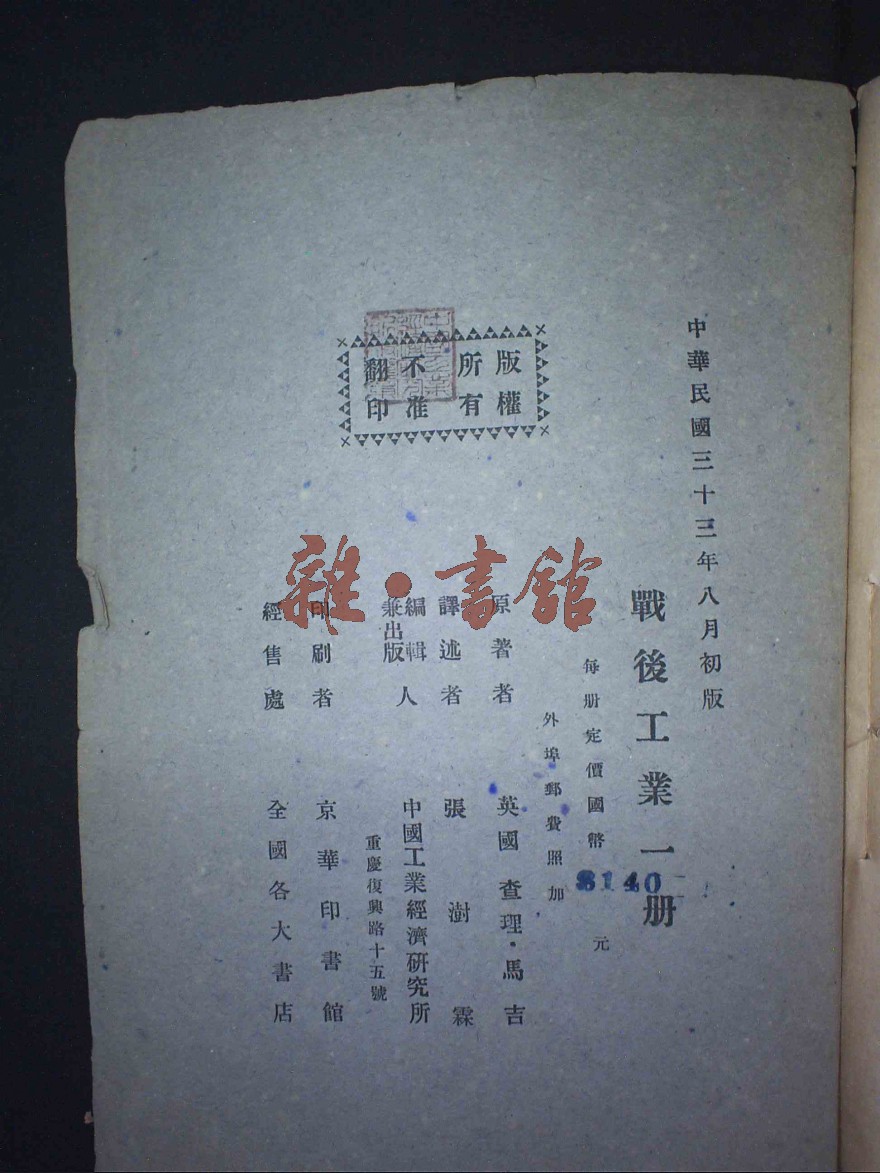 中華民國三十三年八月初版
戰後工業一册
每册定價國幣 $140 元
外埠郵費照加
版權所有
不准翻印
原著者 英國 查理·馬吉
譯述者 張樹霖
編輯兼出版人 中國工業經濟研究所
重慶復興路十五號
印刷者 京華印書館
經售處 全國各大書店
雜·書館